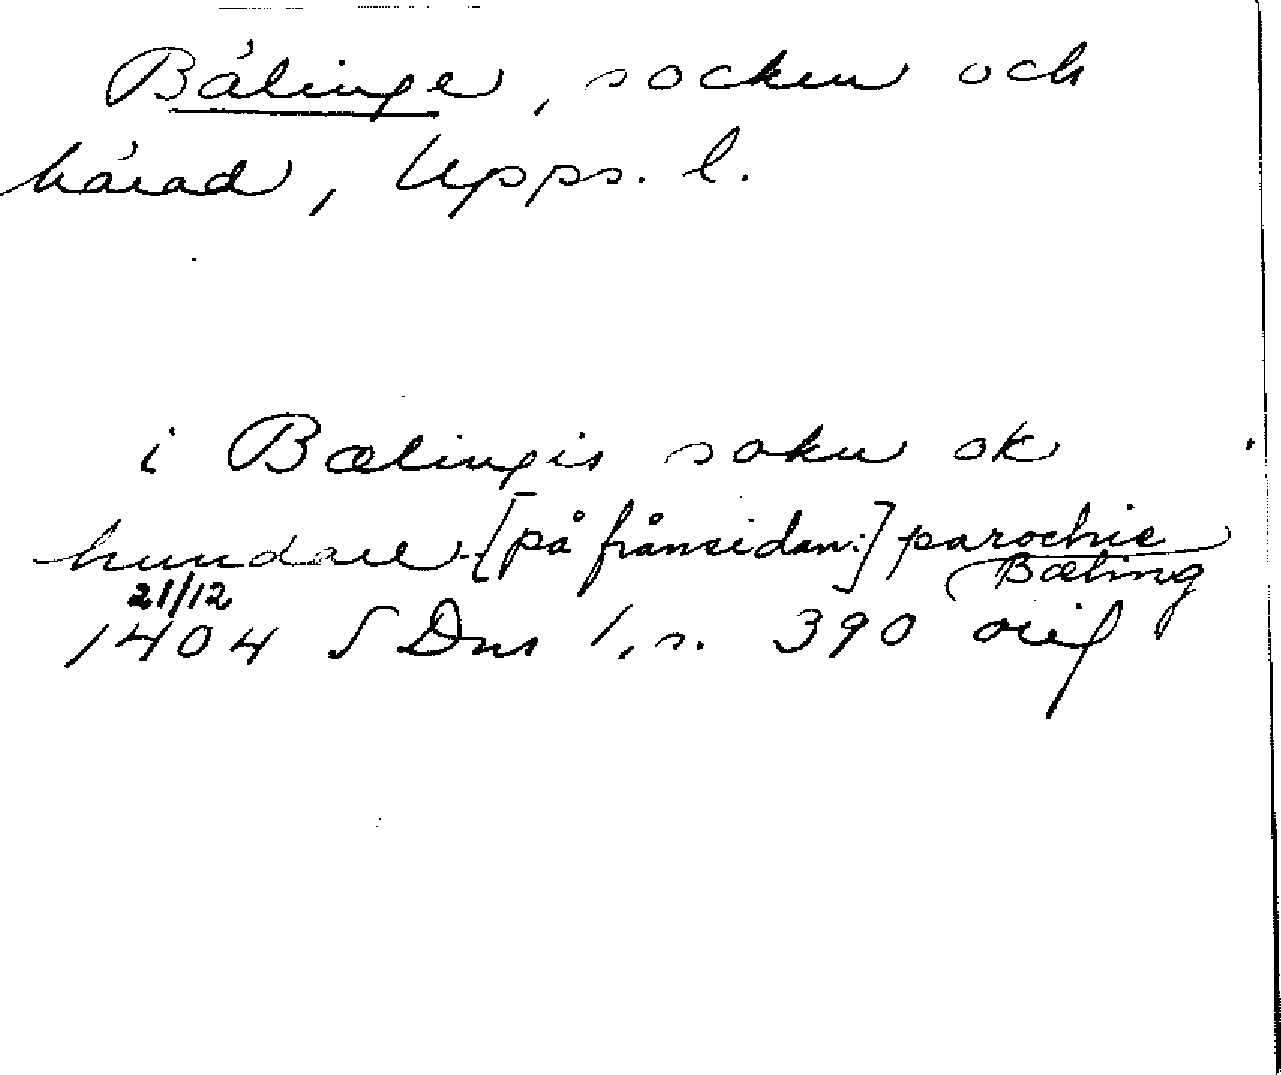 Bälinge, socken och
härad, Upps. l.
i Bælingis sokn ok
hundare [på frånsidan:] parochie
Bæling
21/12
1404 SDns 1, s. 390 orig